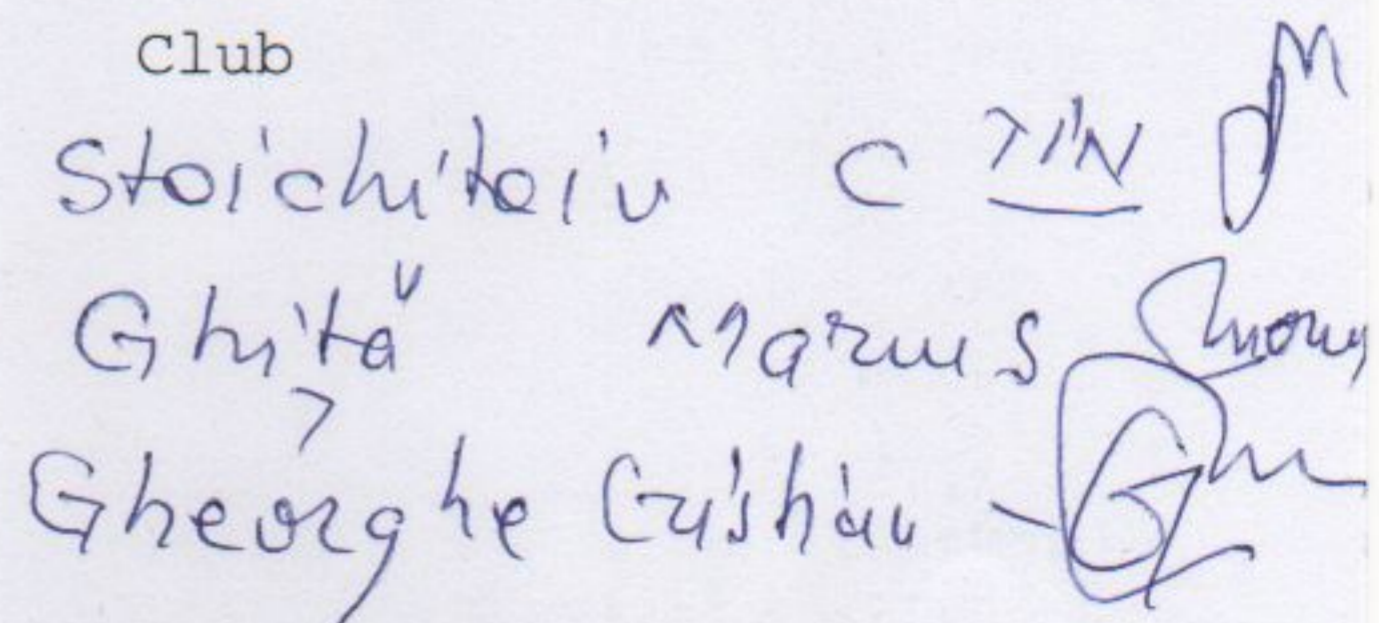 Club
Stoichitoiu C TIN
Ghiță Marius
Gheorghe Cristian